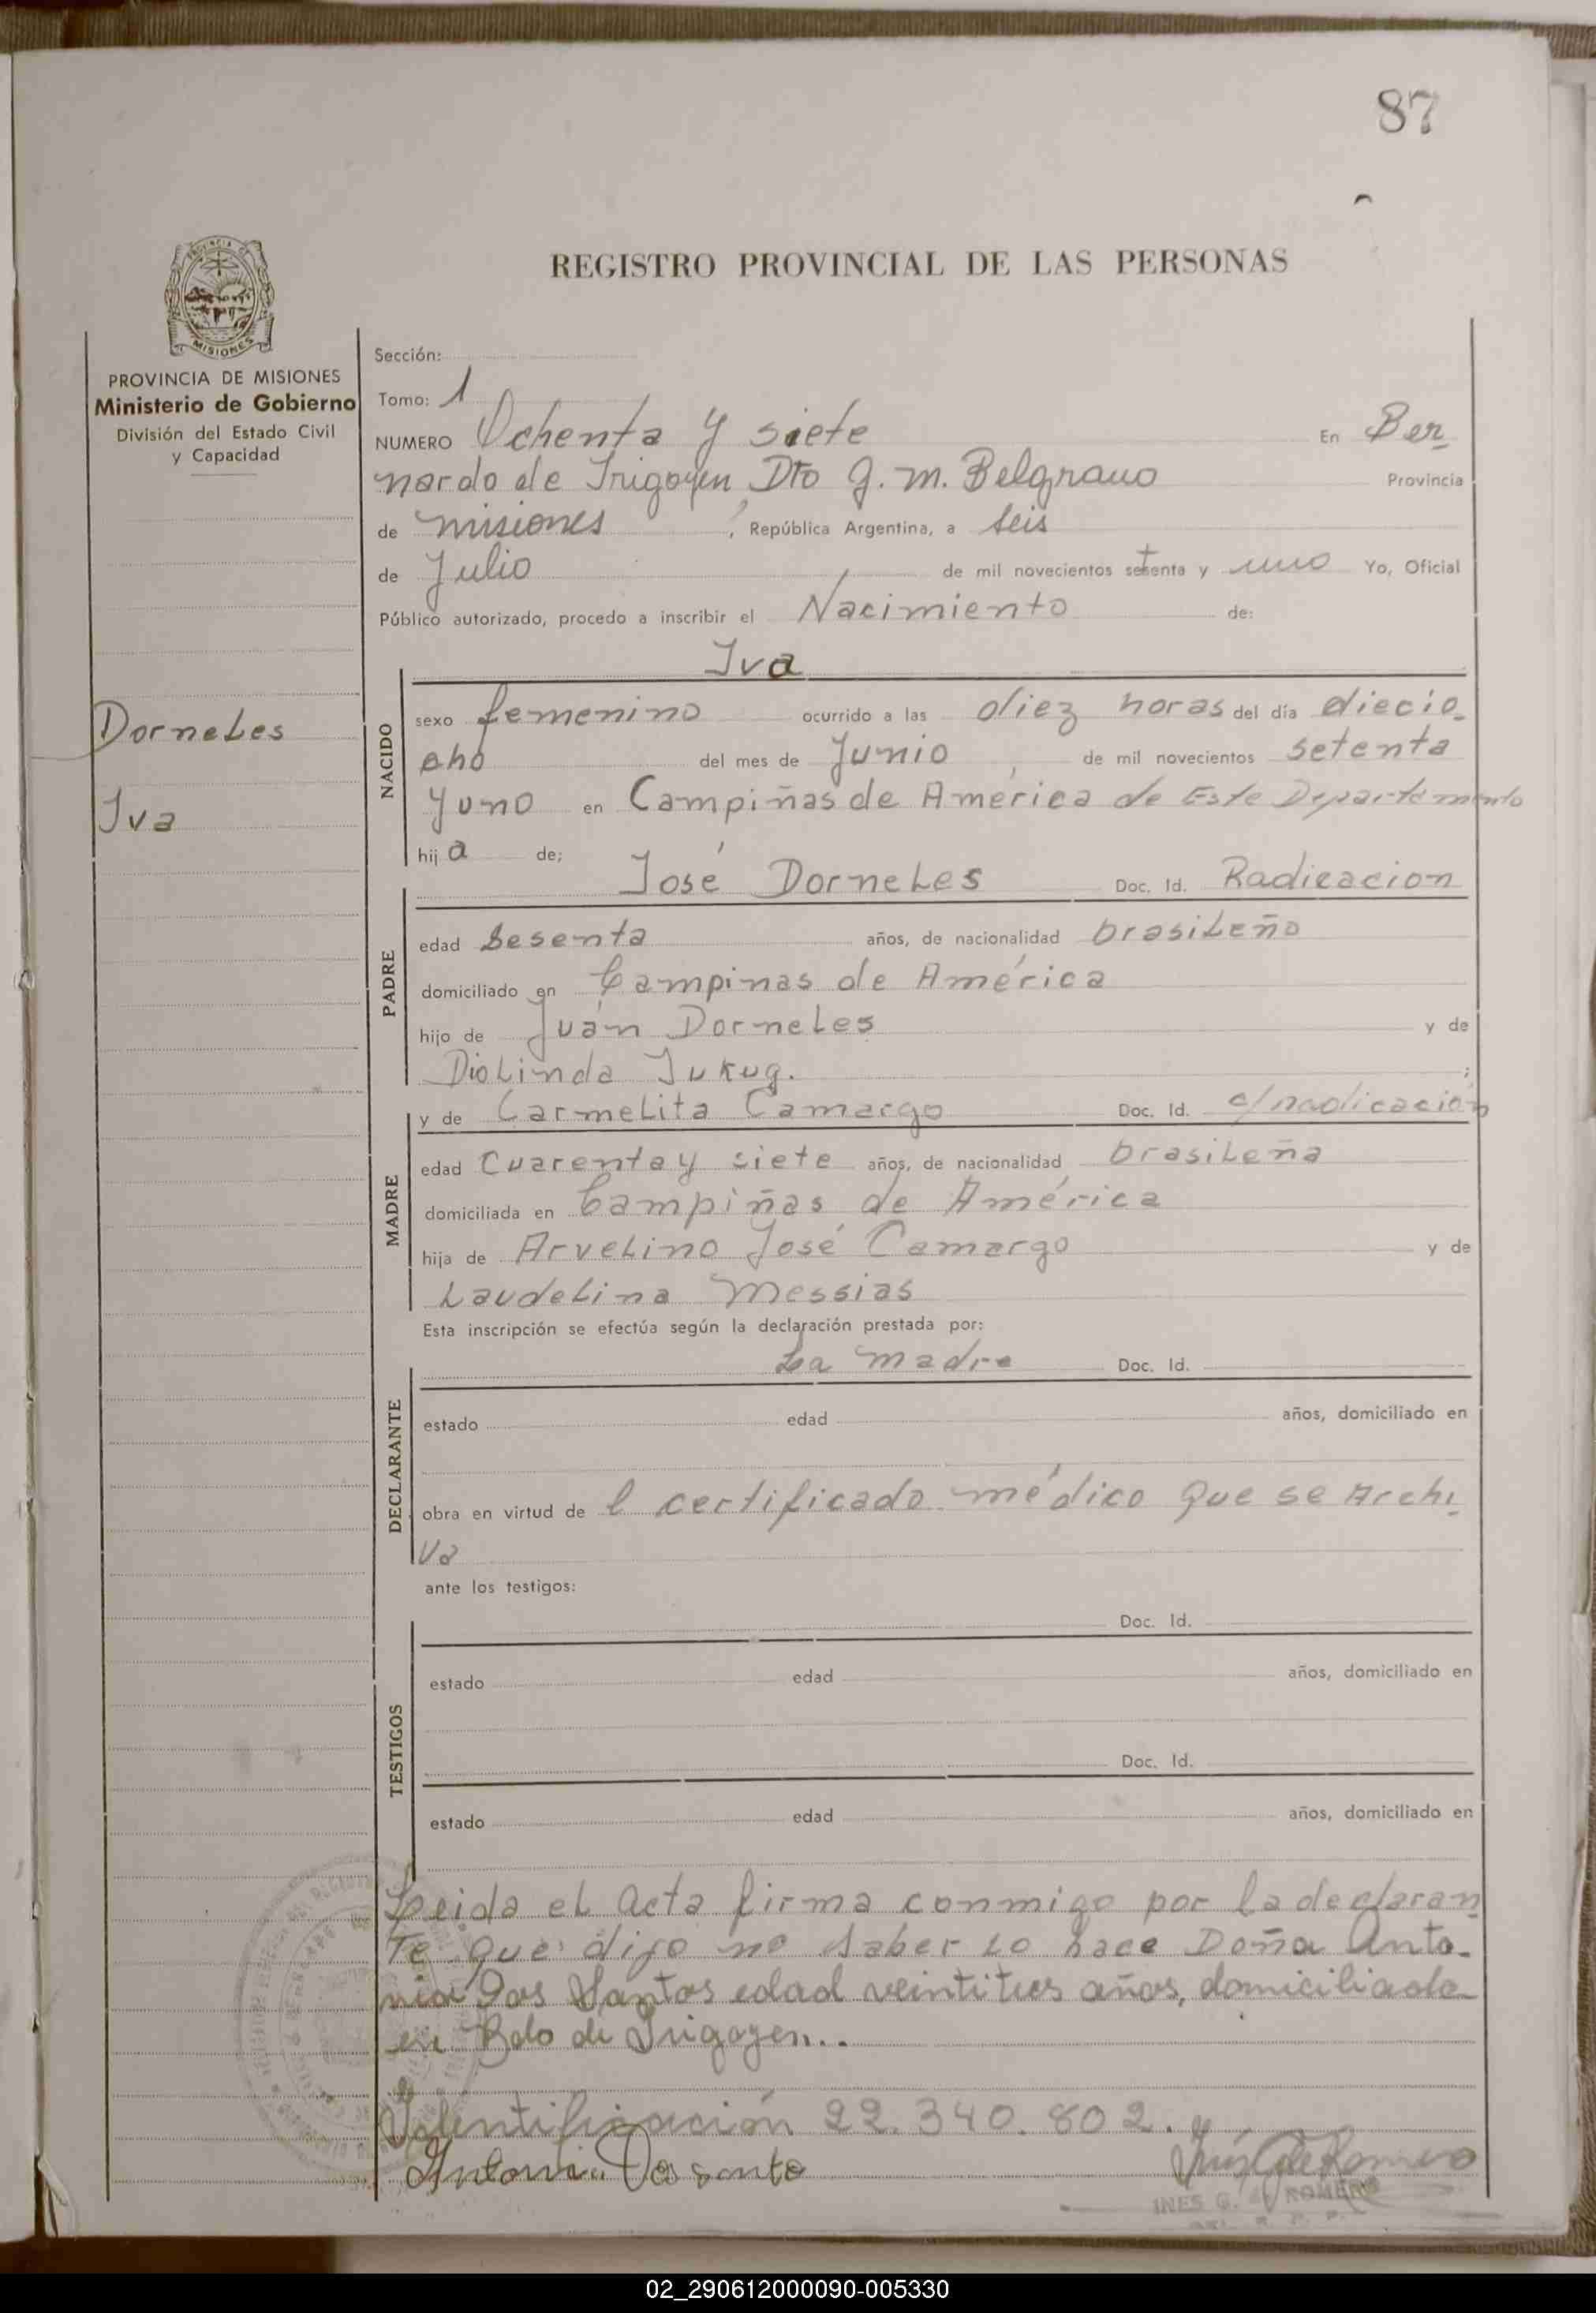 87
REGISTRO PROVINCIAL DE LAS PERSONAS
PROVINCIA DE
MISIONES
PROVINCIA DE MISIONES
Ministerio de Gobierno
División del Estado Civil
y Capacidad
Dorneles
Iva
Sección:
Tomo: 1
NUMERO Ochenta y siete En Ber
nardo de Irigoyen Dto G. M. Belgrano Provincia
de Misiones, República Argentina, a seis
de Julio de mil novecientos setenta y uno Yo, Oficial
Público autorizado, procedo a inscribir el Nacimiento de:
Iva
NACIDO
sexo femenino ocurrido a las diez horas del día diecio
cho del mes de Junio de mil novecientos setenta
y uno en Campiñas de América de Este Departamento
hija de;
José Dorneles Doc. Id. Radicacion
PADRE
edad Sesenta años, de nacionalidad brasileño
domiciliado en Campinas de América
hijo de Juán Dorneles y de
Diolinda Jukug. ;
y de Carmelita Camargo Doc. Id. c/radicación
MADRE
edad Cuarenta y siete años, de nacionalidad brasileña
domiciliada en Campiñas de América
hija de Arvelino José Camargo y de
Laudelina Messias
Esta inscripción se efectúa según la declaración prestada por:
La madre Doc. Id.
DECLARANTE
estado edad años, domiciliado en
obra en virtud de l certificado médico que se Archi
va
ante los testigos:
Doc. Id.
TESTIGOS
estado edad años, domiciliado en
Doc. Id.
estado edad años, domiciliado en
Leida el acta firma conmigo por la declaran
te que dijo no saber lo hace Doña Anto-
nia Dos Santos edad veintitres años, domiciliada
en Bdo de Irigoyen..
Identificación 22.340.802.
Antonia Dos santo
Inés G de Romero
INES G. de ROMERO
02_290612000090-005330